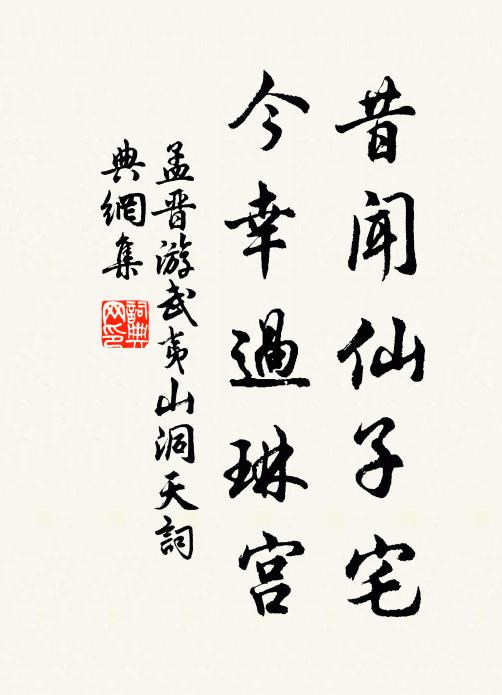 昔闻仙子宅
今幸過琳宫
孟晋游武夷山洞天詞
典網集
詞典
网印